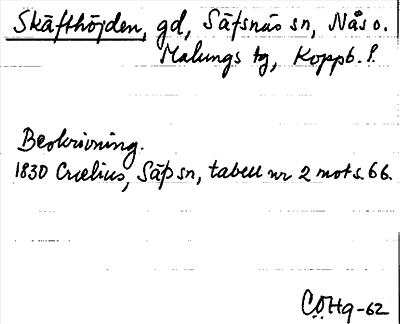 Skäfthöjden, gd, Säfsnäs sn, Nås o.
Malungs tg, Koppb. l.
Beskrivning.
1830 Crælius, Säf sn, tabell nr 2 mot s. 66.
COHq-62